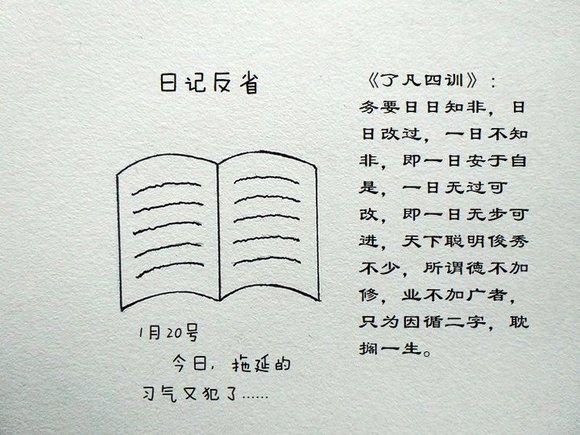 日记反省
1月20号
今日，拖延的
习气又犯了……
《了凡四训》：
务要日日知非，日
日改过，一日不知
非，即一日安于自
是，一日无过可
改，即一日无步可
进，天下聪明俊秀
不少，所谓德不加
修，业不加广者，
只为因循二字，耽
搁一生。